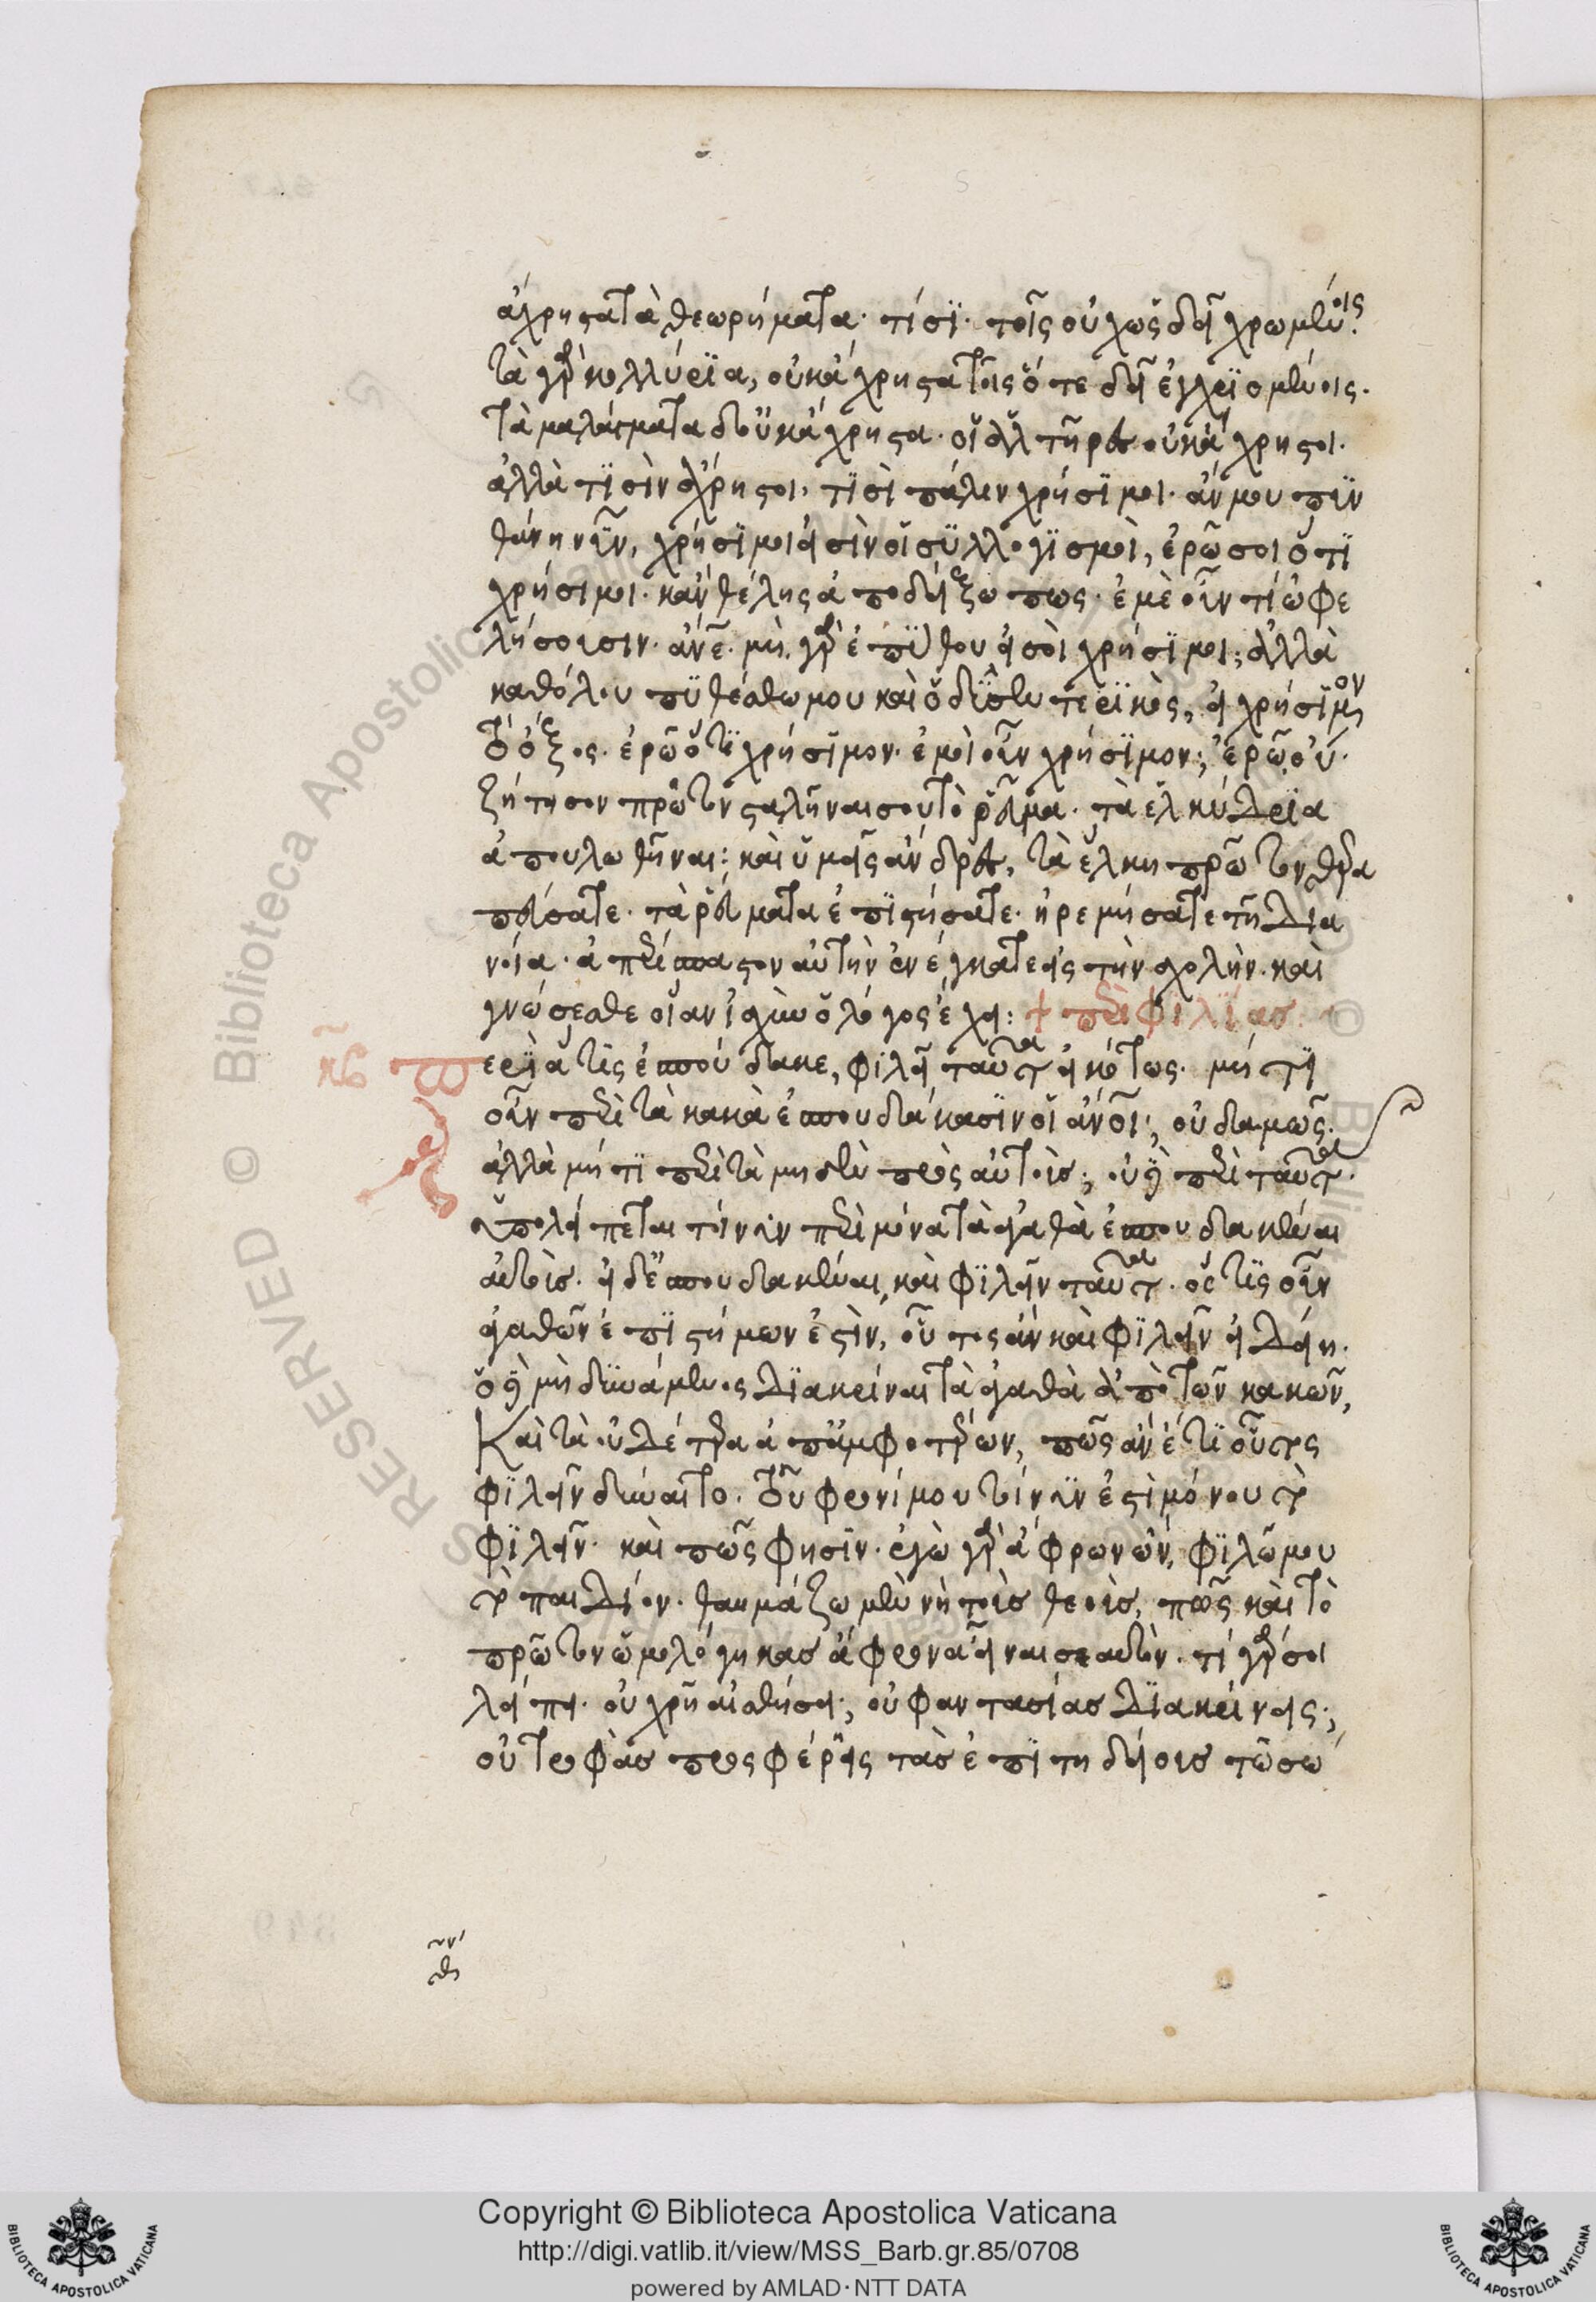 ἄχρηστα τὰ θεωρήματα· τίσι· τοῖς οὐχ ὡς δεῖ χρωμένοις.
τὰ γὰρ κολλύρια, οὐκ ἄχρηστα τοῖς ὅτε δεῖ ἐγχριομένοις.
τὰ μαλάγματα δ' οὐκ ἄχρηστα. οἱ ἁλτῆρες οὐκ ἄχρηστοι.
ἀλλὰ τισὶν ἄχρηστοι, τισὶ πάλιν χρήσιμοι. ἄν μου πυν
θάνῃ νῦν, χρήσιμοι εἰσὶν οἱ συλλογισμοὶ, ἐρῶ σοι ὅτι
χρήσιμοι. κἂν θέλῃς ἀποδείξω πως. ἐμὲ οὖν τί ὠφε
λήσουσιν. ἄνε. μὴ γὰρ ἐπύθου εἰ σοὶ χρήσιμοι; ἀλλὰ
καθόλου πυθέσθω μου καὶ ὁ δυσεντερικὸς, εἰ χρήσιμον
τὸ ὄξος. ἐρῶ ὅτι χρήσιμον. ἐμοὶ οὖν χρήσιμον; ἐρῶ οὔ.
ζήτησον πρῶτον σταλῆναι σου τὸ ῥεῦμα. τὰ ἑλκύδρια
ἀπουλωθῆναι: καὶ ὑμεῖς ἄνδρες, τὰ ἕλκη πρῶτον θερα
πεύσατε. τὰ ῥεύματα ἐπιστήσατε. ἠρεμήσατε τῇ δια
νοίᾳ. ἀπερίσπαστον αὐτὴν ἐνέγκατε εἰς τὴν σχολὴν. καὶ
γνώσεσθε οἵαν ἰσχὺν ὁ λόγος ἔχει: + περὶ φιλίας
κβ
Περὶ ἅ τις ἐσπούδακε, φιλεῖ ταῦτα εἰκότως. μή τι
οὖν περὶ τὰ κακὰ ἐσπουδάκασιν οἱ ἄνοι; οὐδαμῶς.
ἀλλὰ μή τι περὶ τὰ μηδὲν πρὸς αὐτοὺς; οὐδὲ περὶ ταῦτα.
ὑπολείπεται τοίνυν περὶ μόνα τὰ ἀγαθὰ ἐσπουδακέναι
αὐτοὺς. εἰ δ' ἐσπουδακέναι, καὶ φιλεῖν ταῦτα. ὅστις οὖν
ἀγαθῶν ἐπιστήμων ἐστὶν, οὗτος ἂν καὶ φιλεῖν εἰδείη.
ὁ δὲ μὴ δυνάμενος διακρίναι τὰ ἀγαθὰ ἀπὸ τῶν κακῶν,
Καὶ τὰ οὐδέτερα ἀπ' ἀμφοτέρων, πῶς ἂν ἔτι οὗτος
φιλεῖν δύναιτο. τοῦ φρονίμου τοίνυν ἐστὶ μόνου τὸ
φιλεῖν. καὶ πῶς φησὶν. ἐγὼ γὰρ ἄφρων ὢν, φιλῶ μου
τὸ παιδίον. θαυμάζω μὲν νὴ τοὺς θεοὺς, πῶς καὶ τὸ
πρῶτον ὡμολόγηκας ἄφρονα εἶναι σεαυτὸν. τί γάρ σοι
λείπει. οὐ χρῇ αἰσθήσει; οὐ φαντασίας διακρίνεις;
οὐ τροφὰς προσφέρεις τὰς ἐπιτηδείους τῷ σώ